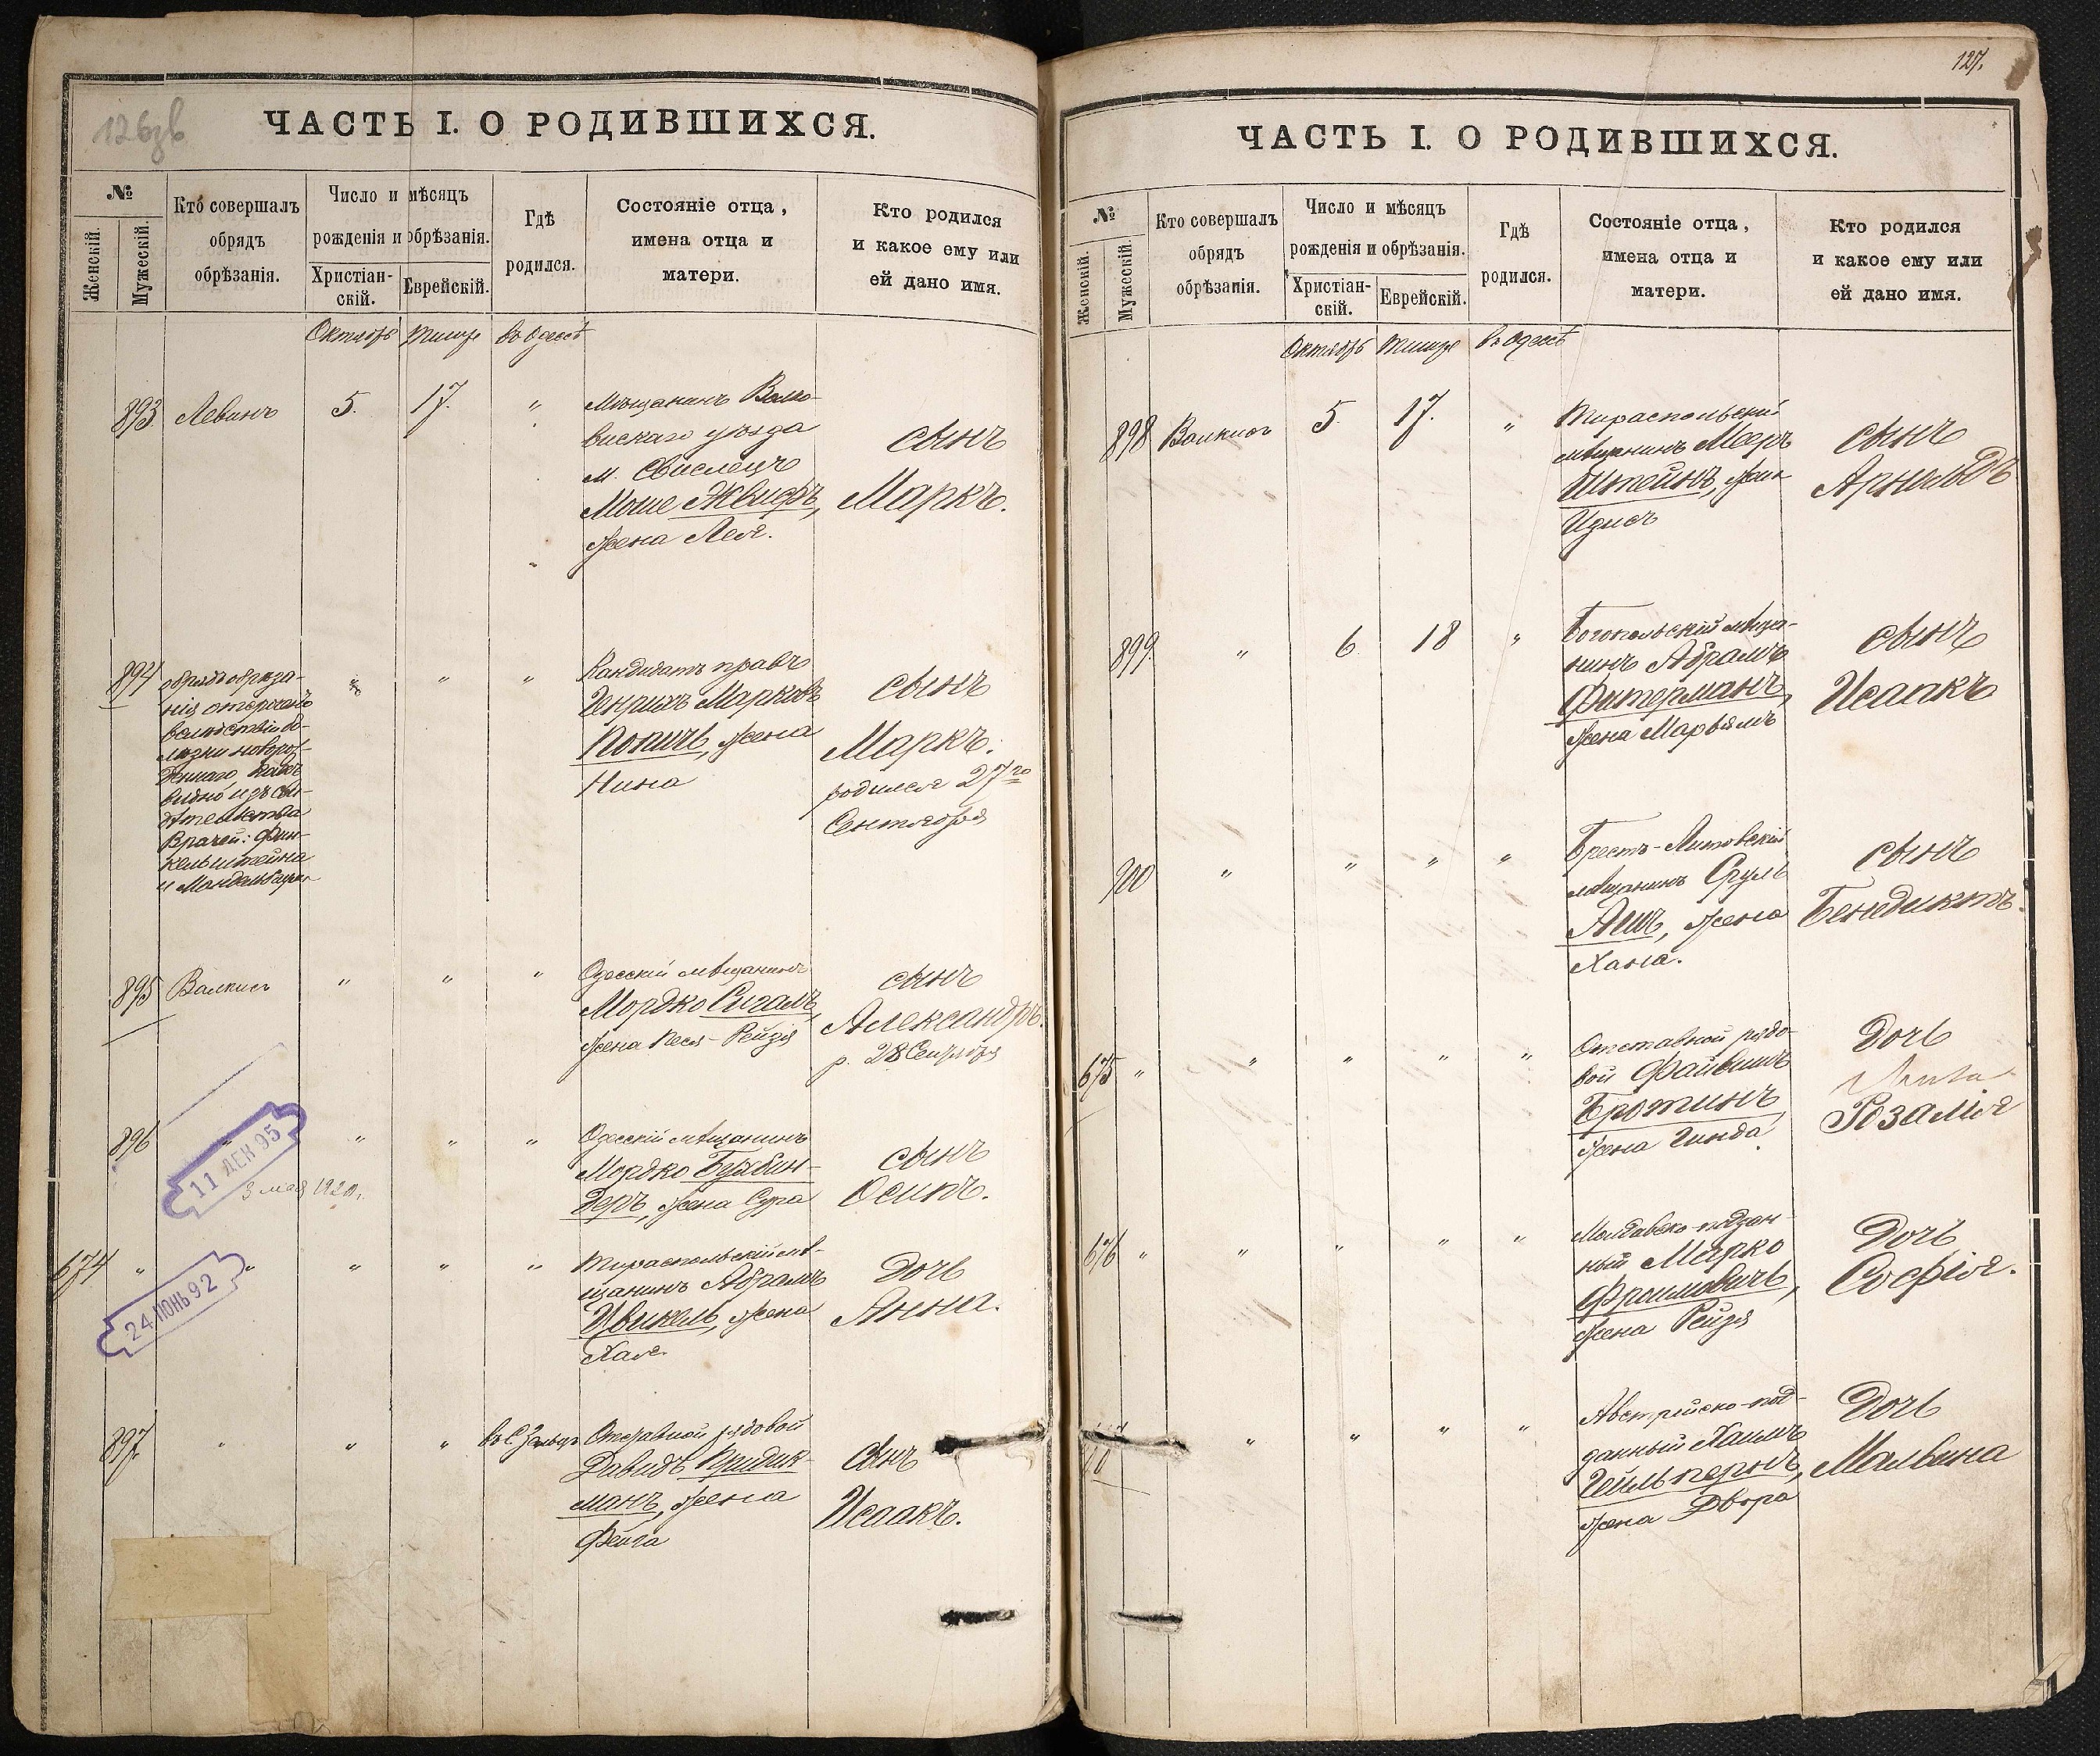 126зв
ЧАСТЬ I. О РОДИВШИХСЯ.
№
Женскій.
Мужескій.
Кто совершалъ
обрядъ
обрѣзанія.
Число и мѣсяцъ
рожденія и обрѣзанія.
Христіан-
скій.
Еврейскій.
Гдѣ
родился.
Состояніе отца,
имена отца и
матери.
Кто родился
и какое ему или
ей дано имя.
Октябрь Тишре въ Одессѣ
893. Левинъ 5. 17. „
Мѣщанинъ Волко-
вискаго уѣзда
м. Свислочь
Моше
жена Лея.
сынъ
Маркъ.
894 „ „ „
обрядъ обрѣза-
нія отсрочено
вслѣдствіи бо-
лѣзни новорож-
деннаго какъ
видно изъ сви-
дѣтельства
врачей: Фин-
кельштейна
и
Кандидатъ правъ
Генрихъ Марковъ
жена
Нина
сынъ
Маркъ.
родился 27го
Сентября
895 Валкисъ „ „ „
Одесскій мѣщанинъ
Мордко Сигалъ,
жена Песя-Рейзя
сынъ
Александръ.
р. 28 Сентября
896 „ „ „ „
Одесскій мѣщанинъ
Мордко Бухбин-
деръ, жена Сура
сынъ
Осипъ.
11 ДЕК 95
3 мая 1920 г.
674 „ „ „ „ „
Тираспольскій мѣ-
щанинъ Абрамъ
Цвикель, жена
Хая.
дочь
Анна.
24 ІЮНЬ 92
897. „ „ „
Отставной рядовой
Давидъ Придик-
манъ, жена
Фейга
сынъ
Исаакъ.
127.
ЧАСТЬ I. О РОДИВШИХСЯ.
№
Женскій.
Мужескій.
Кто совершалъ
обрядъ
обрѣзанія.
Число и мѣсяцъ
рожденія и обрѣзанія.
Христіан-
скій.
Еврейскій.
Гдѣ
родился.
Состояніе отца,
имена отца и
матери.
Кто родился
и какое ему или
ей дано имя.
Октябрь Тишре въ Одессѣ
898 Валкисъ 5. 17. „
Тираспольскій
мѣщанинъ Мееръ
Штейнъ, жена
Идисъ
сынъ
Арнольдъ
899. „ 6. 18 „
Богопольскій мѣща-
нинъ Абрамъ
Фитерманъ,
жена Марьямъ
сынъ
Исаакъ
900 „ „ „ „
Брестъ-Литовскій
мѣщанинъ Сруль
Ашъ, жена
Хана.
сынъ
Бенедиктъ.
675 „ „ „ „ „
Отставной рядо-
вой Файвишъ
Бротинъ
жена Гинда
дочь
Розалія
676 „ „ „ „ „
Молдавско-поддан-
ный Марко
Фроимовичъ,
жена Рейзя
дочь
Софія.
„ „ „ „
Австрійско-под-
данный Хаимъ
Гейльпернъ,
жена Двора
дочь
Мальвина